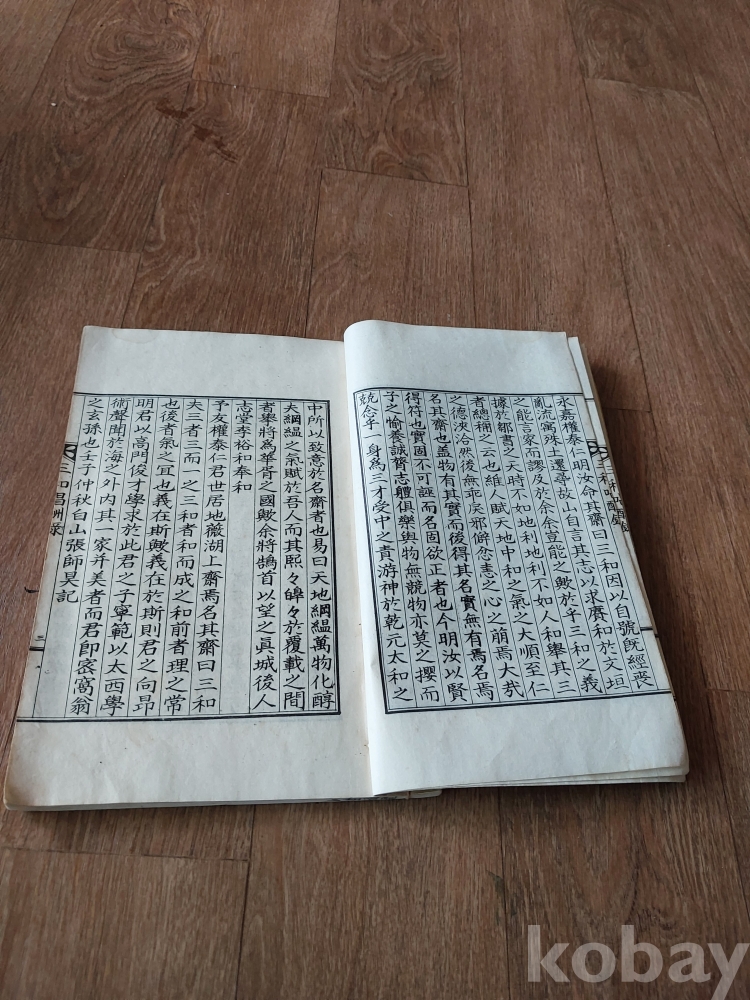 永嘉權泰仁明汝命其齋曰三和因以自號旣經喪
亂流寓殊土還尋故山自言其志以求賡和於文垣
之能言家而謬及於余余豈能之歟於乎三和之義
據於鄒書之天時不如地利地利不如人和擧其三
者緫稱之云也維人賦天地中和之氣之大順至仁
之德浹洽然後無乖戾邪僻愆恚之心之崩焉大哉
名其齋也盖物有其實而後得其名實無有焉名焉
得符也實固不可誣而名固欲正者也今明汝以賢
子之愉養誠篤志軆俱樂與物無競物亦莫之攖而
競念乎一身爲三才受中之責游神於乾元太和之
中所以致意於名齋者也易曰天地絪縕萬物化醇
夫絪縕之氣賦於吾人而其熙々皥々於覆載之間
者擧將爲華胥之國歟余將鵠首以望之眞城後人
志堂李裕和奉和
予友權泰仁君世居地薇湖上齋焉名其齋曰三和
夫三者三而一之三和者和而成之和前者理之常
也後者氣之宜也義在斯歟義在於斯則君之向昂
明君以高門俊才學求於此君之子寧範以太西學
術聲聞於海之外內其一家幷美者而君卽宻窩翁
之玄孫也壬子仲秋白山張師昊記
三和唱酬录
kobay